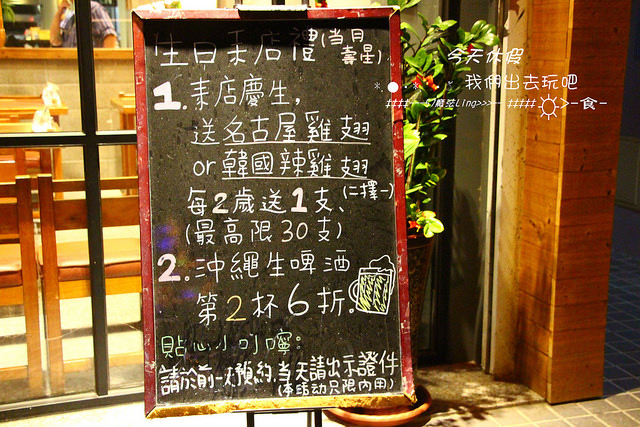 生日來店禮(當月壽星)
1.來店慶生,
送名古屋雞翅
or韓國辣雞翅
每2歲送1支、(二擇一)
(最高限30支)
2.沖繩生啤酒
第2杯6折.
貼心小叮嚀:
請於前一天預約.當天請出示證件
(本活动只限內用)
今天休假
我們出去玩吧
-食-